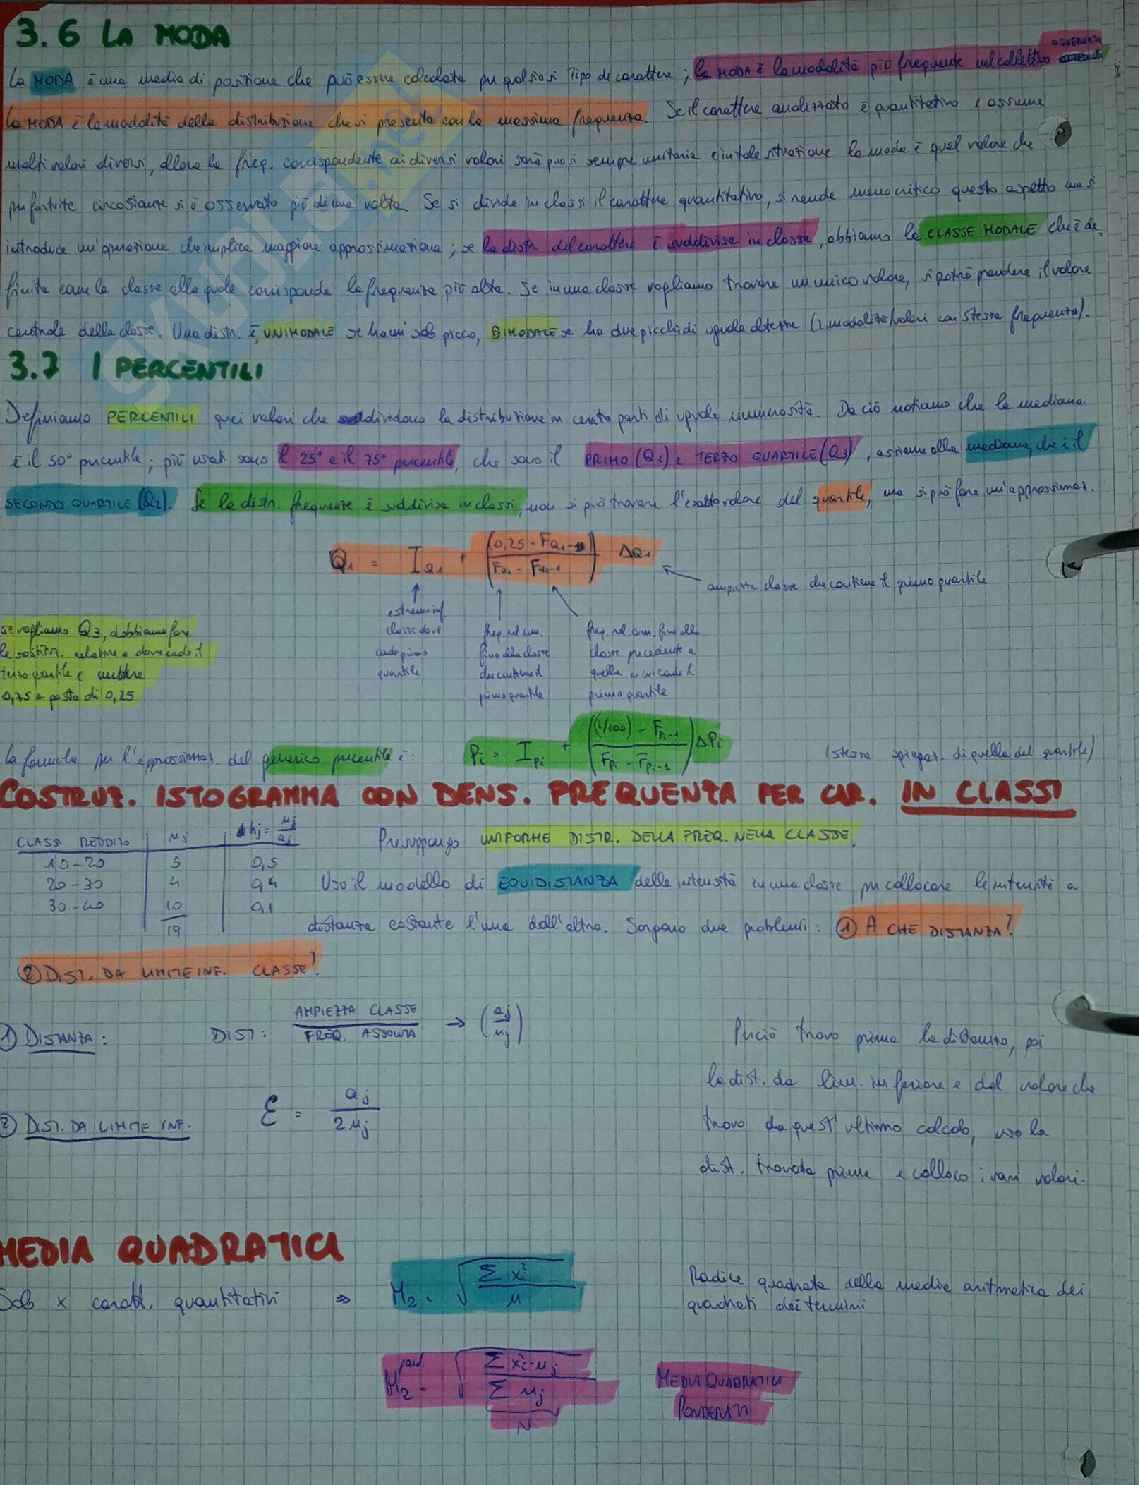 3.6 LA MODA
La MODA è una media di posizione che può essere calcolata per qualsiasi tipo di carattere; la MODA è la modalità più frequente nel collettivo
La MODA è la modalità della distribuzione che si presenta con la massima frequenza. Se il carattere analizzato è quantitativo e assume
molti valori diversi, allora la freq. corrispondente ai diversi valori sarà quasi sempre unitaria e in tale situazione la moda è quel valore che
per fortuite circostanze si è osservato più di una volta. Se si divide in classi il carattere quantitativo, si rende meno critico questo aspetto ma si
introduce un'operazione che implica maggiore approssimazione; se la distr. del carattere è suddivisa in classi, abbiamo la CLASSE MODALE che è de
finita come la classe alla quale corrisponde la frequenza più alta. Se in una classe vogliamo trovare un unico valore, si potrà prendere il valore
centrale della classe. Una distr. è UNIMODALE se ha un solo picco, BIMODALE se ha due picchi di uguale altezza (2 modalità/valori con stessa frequenza).
3.7 I PERCENTILI
Definiamo PERCENTILI quei valori che dividono la distribuzione in cento parti di uguale numerosità. Da ciò notiamo che la mediana
è il 50° percentile; più usati sono il 25° e il 75° percentile, che sono il PRIMO (Q1) e TERZO QUARTILE (Q3), assieme alla mediana, che è il
SECONDO QUARTILE (Q2). Se la distr. frequenze è suddivisa in classi, non si può trovare l'esatto valore del quartile, ma si può fare un'approssimaz.
Q1 = I Q1 + ((0,25 - F Q1-1) / (F Q1 - F Q1-1)) ΔQ1
ampiezza classe che contiene il primo quartile
estremo inf. classe dove cade primo quartile
freq. rel. cum. fino alla classe che contiene il primo quartile
freq. rel. cum. fino alla classe precedente a quella in cui cade il primo quartile
se vogliamo Q3, dobbiamo fare
le sostituz. relative a dov'è il
terzo quartile e mettere
0,75 al posto di 0,25
La formula per l'approssimaz. del generico percentile è: Pi = I Pi + (((i/100) - F Pi-1) / (F Pi - F Pi-1)) ΔPi (stesse spiegaz. di quella del quartile)
COSTRUZ. ISTOGRAMMA CON DENS. FREQUENZA PER CAR. IN CLASSI
CLASSI REDDITO nj hj = nj/aj
10-20 5 0,5
20-30 4 0,4
30-40 10 0,1
19
Presuppongo UNIFORME DISTR. DELLA FREQ. NELLA CLASSE.
Uso il modello di EQUIDISTANZA delle intensità in una classe per collocare le intensità a
distanza costante l'una dall'altra. Sorgono due problemi: ① A CHE DISTANZA?
② DIST. DA LIMITE INF. CLASSE?
1) DISTANZA: DIST: AMPIEZZA CLASSE / FREQ. ASSOLUTA → (aj/nj)
2) DIST. DA LIMITE INF. ε = aj / 2nj
Perciò trovo prima la distanza, poi
la dist. da lim. inferiore e dal valore che
trovo da quest'ultimo calcolo, uso la
dist. trovata prima e colloco i vari valori.
MEDIA QUADRATICA
Solo x caratt. quantitativi ⇒ M2 = √(Σ xi² / n)
Radice quadrata della media aritmetica dei
quadrati dei termini
M2 pond = √(Σ xi² · nj / Σ nj)
N
MEDIA QUADRATICA
PONDERATA